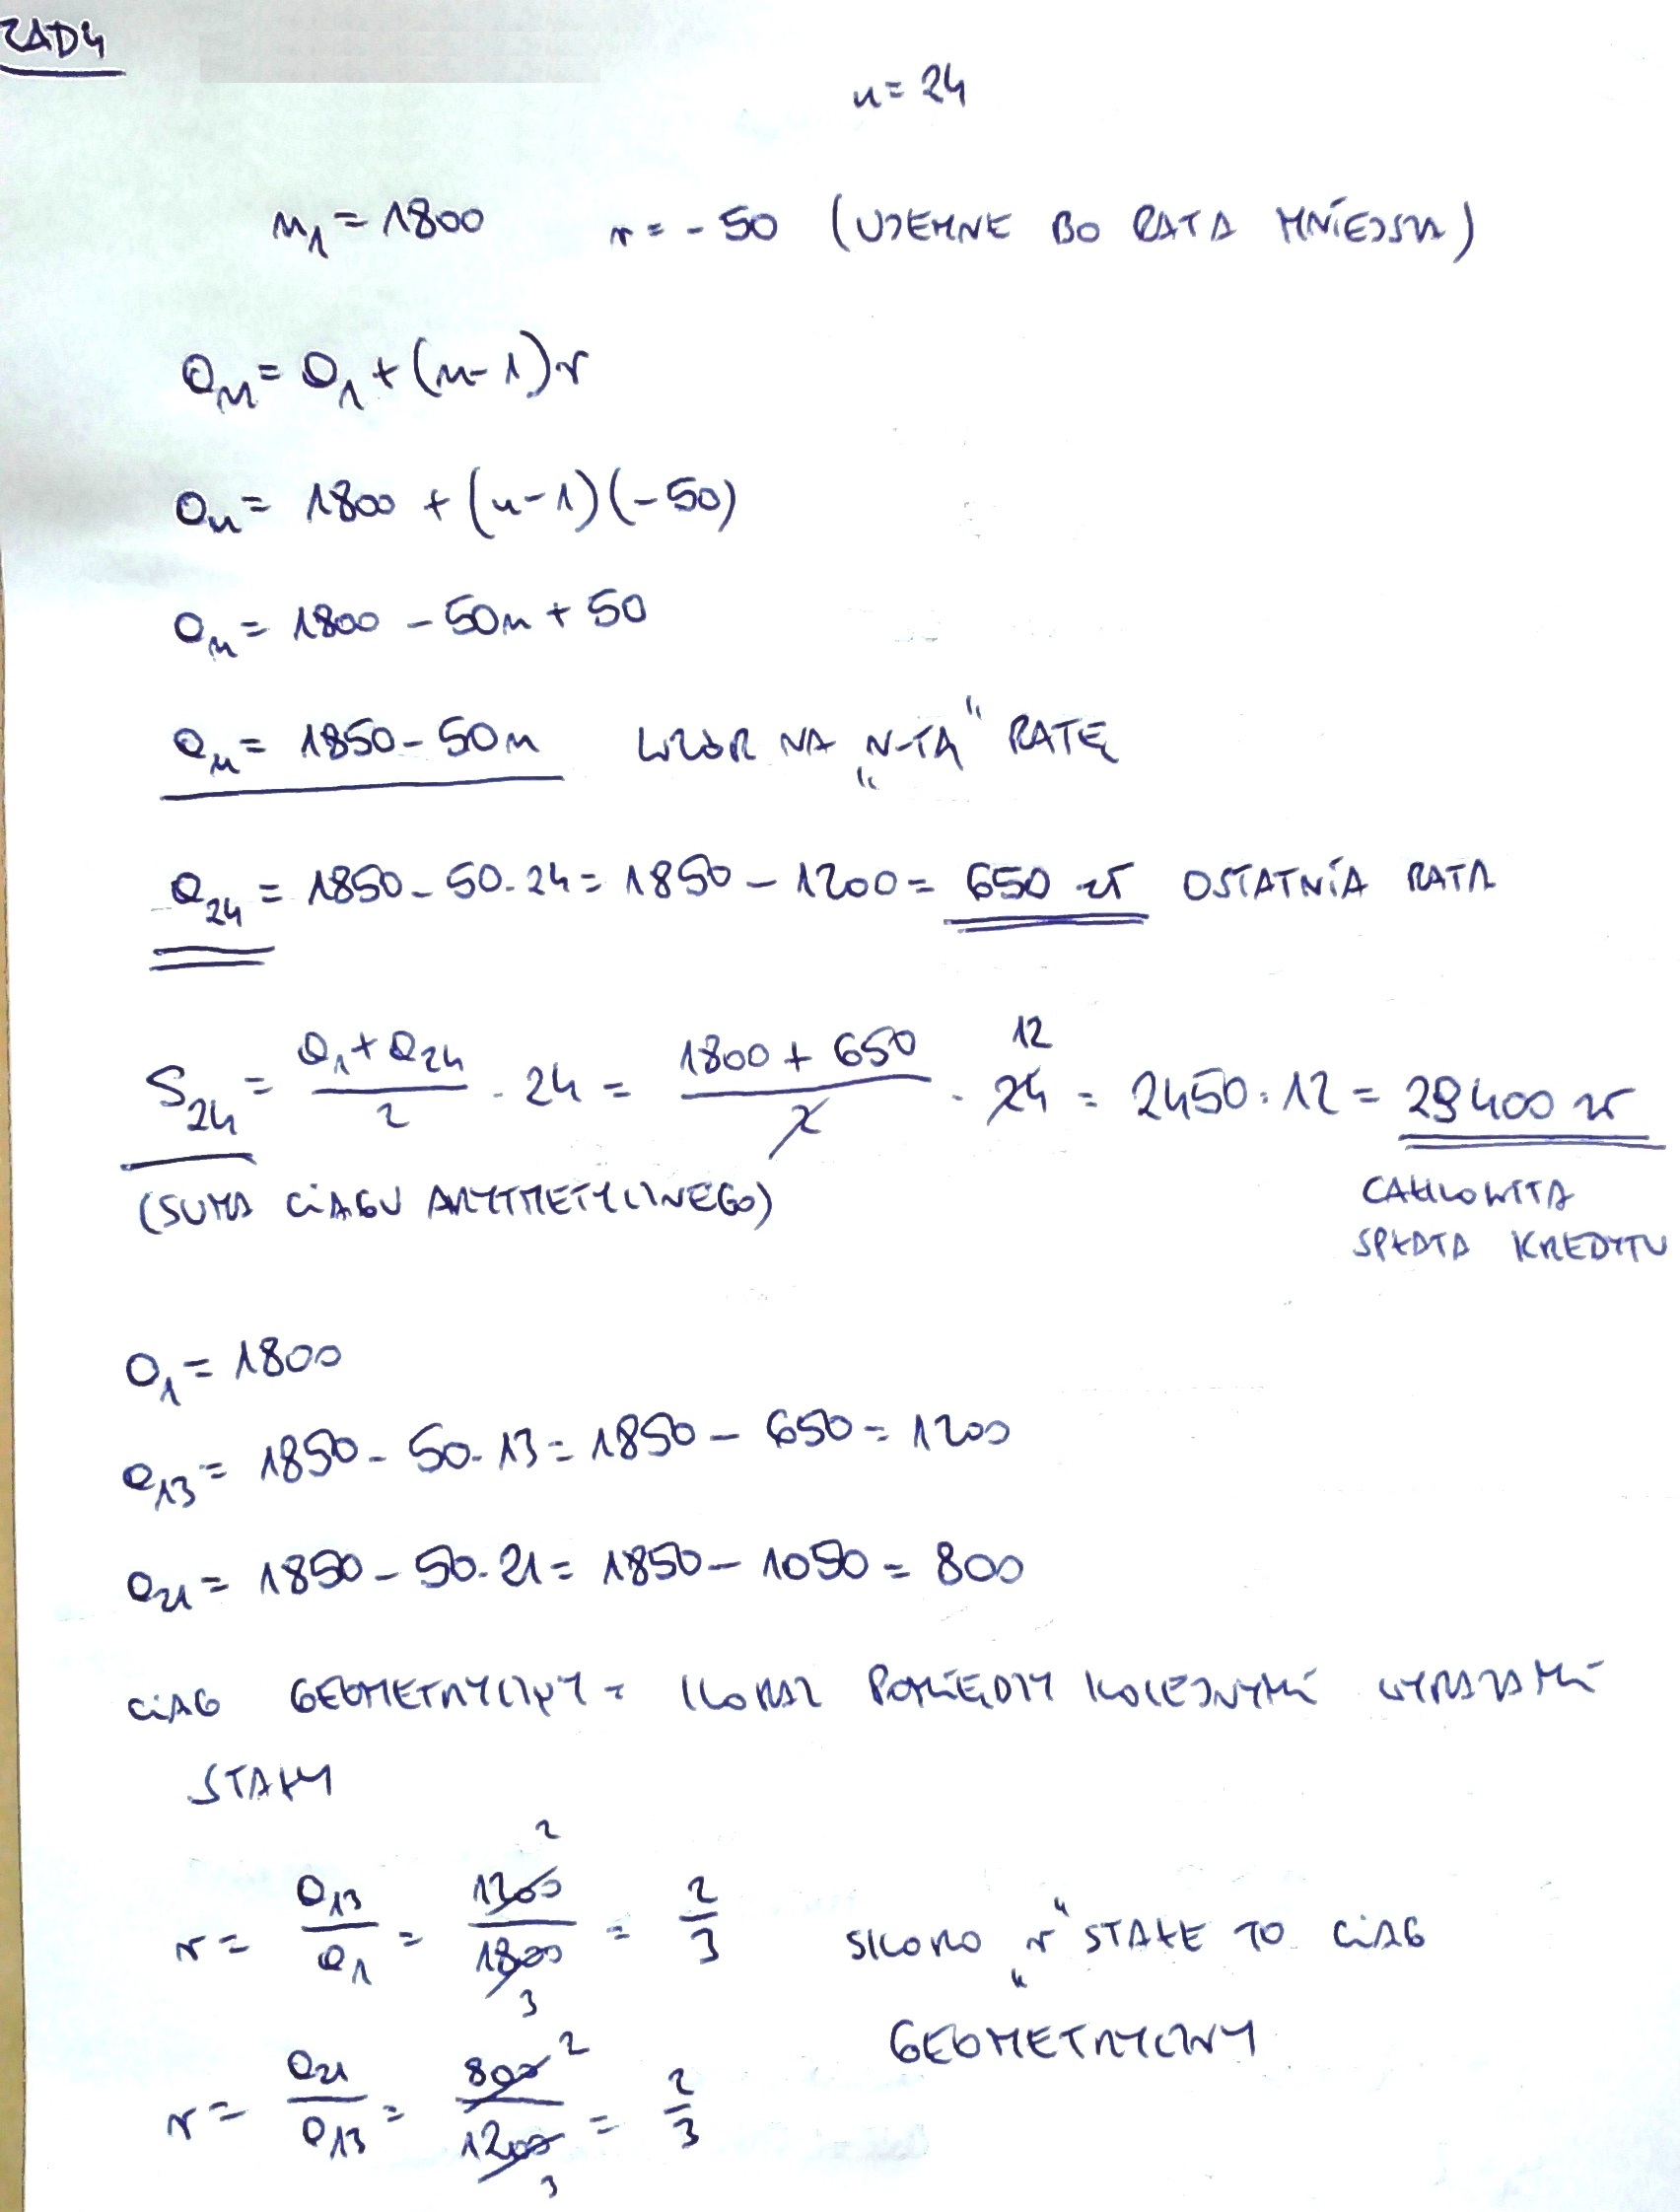 ZAD4
n = 24
n₁ = 1800 r = -50 (UJEMNE BO RATA MNIEJSZA)
aₙ = a₁ + (n-1)r
aₙ = 1800 + (n-1)(-50)
aₙ = 1800 - 50n + 50
aₙ = 1850 - 50n WZÓR NA „N-TĄ" RATĘ
a₂₄ = 1850 - 50·24 = 1850 - 1200 = 650 zł OSTATNIA RATA
S₂₄ = (a₁ + a₂₄)/2 · 24 = (1800 + 650)/2 · 24 12 = 2450·12 = 29400 zł
(SUMA CIAGU ARYTMETYCZNEGO) CAŁKOWITA
SPŁATA KREDYTU
a₁ = 1800
a₁₃ = 1850 - 50·13 = 1850 - 650 = 1200
a₂₁ = 1850 - 50·21 = 1850 - 1050 = 800
CIAG GEOMETRYCZNY = ILORAZ POMIĘDZY KOLEJNYMI WYRAZAMI
STAŁY
r = a₁₃/a₁ = 1200 2/1800 3 = 2/3 SKORO „r" STAŁE TO CIAG
GEOMETRYCZNY
r = a₂₁/a₁₃ = 800 2/1200 3 = 2/3